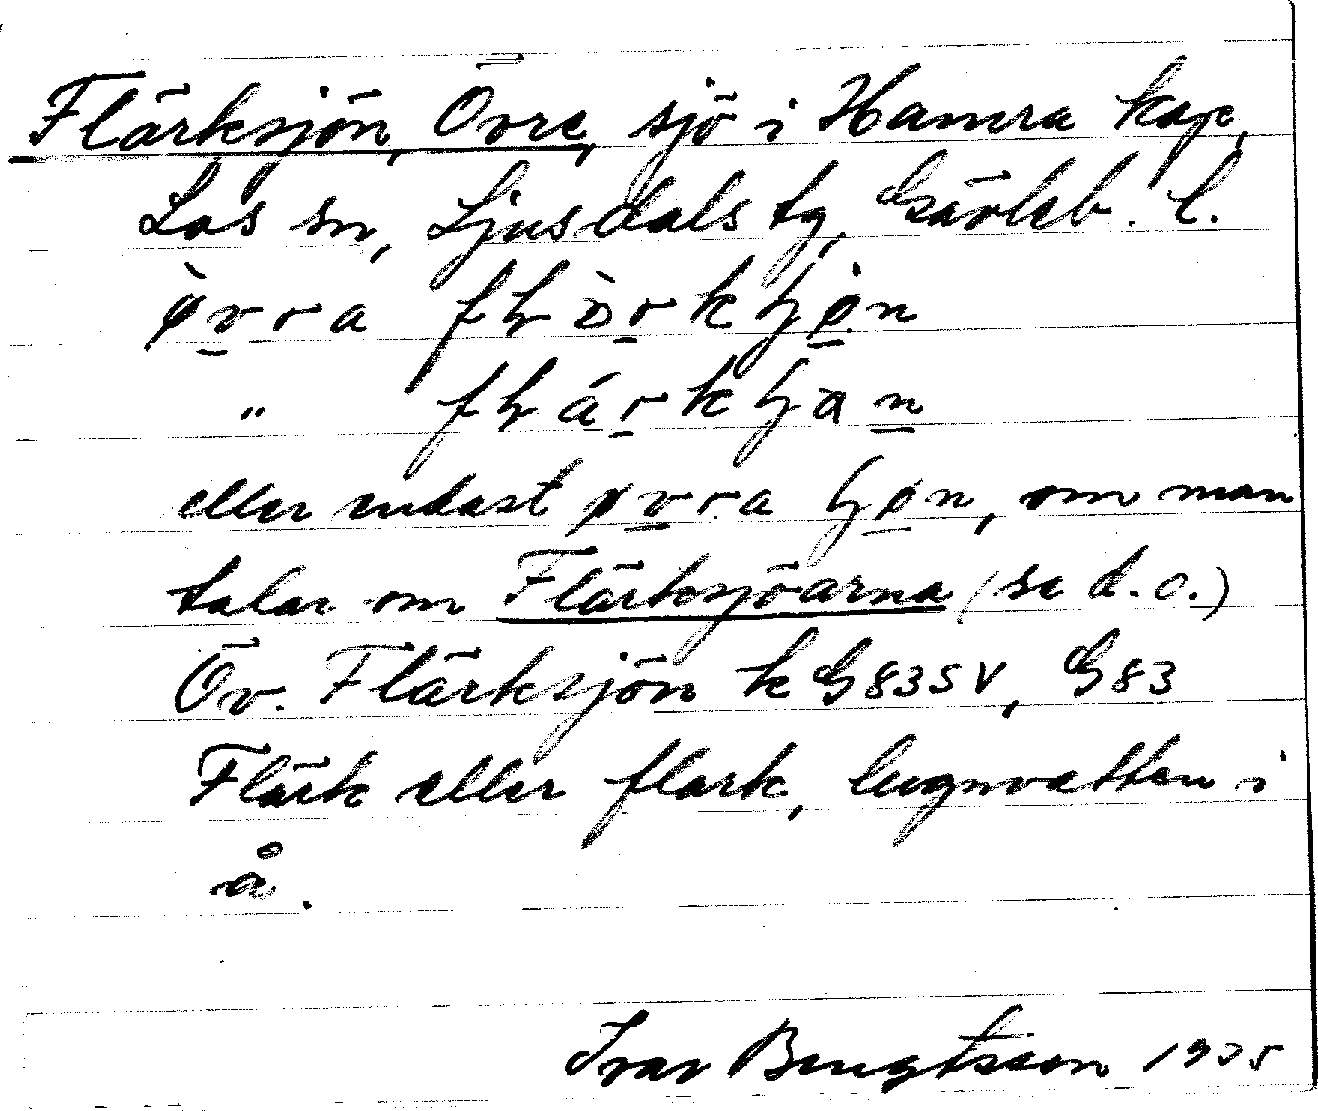 Flärksjön, Övre, sjö i Hamra kap,
Los sn, Ljusdals tg, Gävleb. l.
eller endast øvra ꜧøn, om man
talar om Flärksjöarna (se d.o.)
Öv. Flärksjön k G83SV, G83
Flärk eller flark, lugnvatten i
å.
Ivar Bengtsson 1935